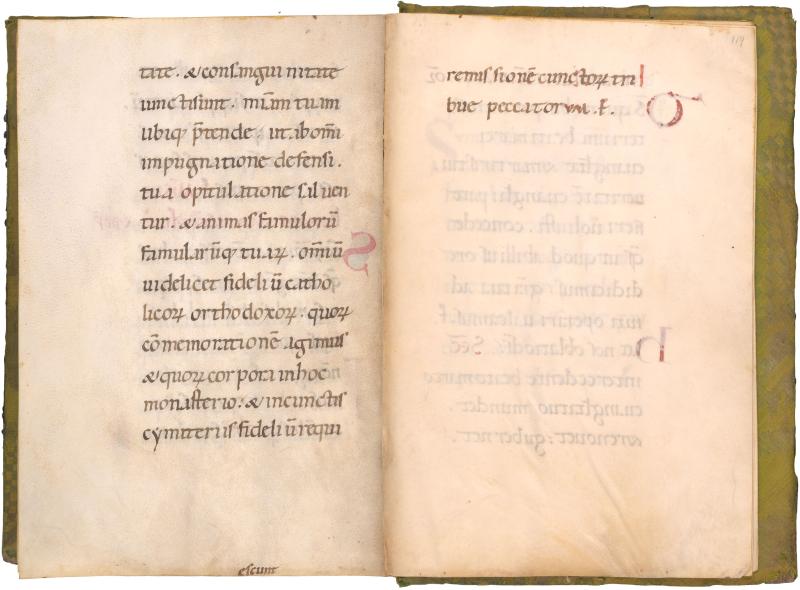 tate. & consanguinitate
iuncti sunt. miam tuam
ubiq; p̄tende. ut ab om̄i
impugnatione defensi.
tua opitulatione saluen
tur. & animas famulorū
famularūq; tuaꝝ. omiū
uidelicet fideliū catho
licoꝝ orthodoxoꝝ. quoꝝ
cōmemorationē agimus
& quoꝝ corpora in hoc
monasterio. & in cunctis
cymiteriis fideliū requi
escunt
119
remissionē cunctoꝝ tri
bue peccatorum. P.